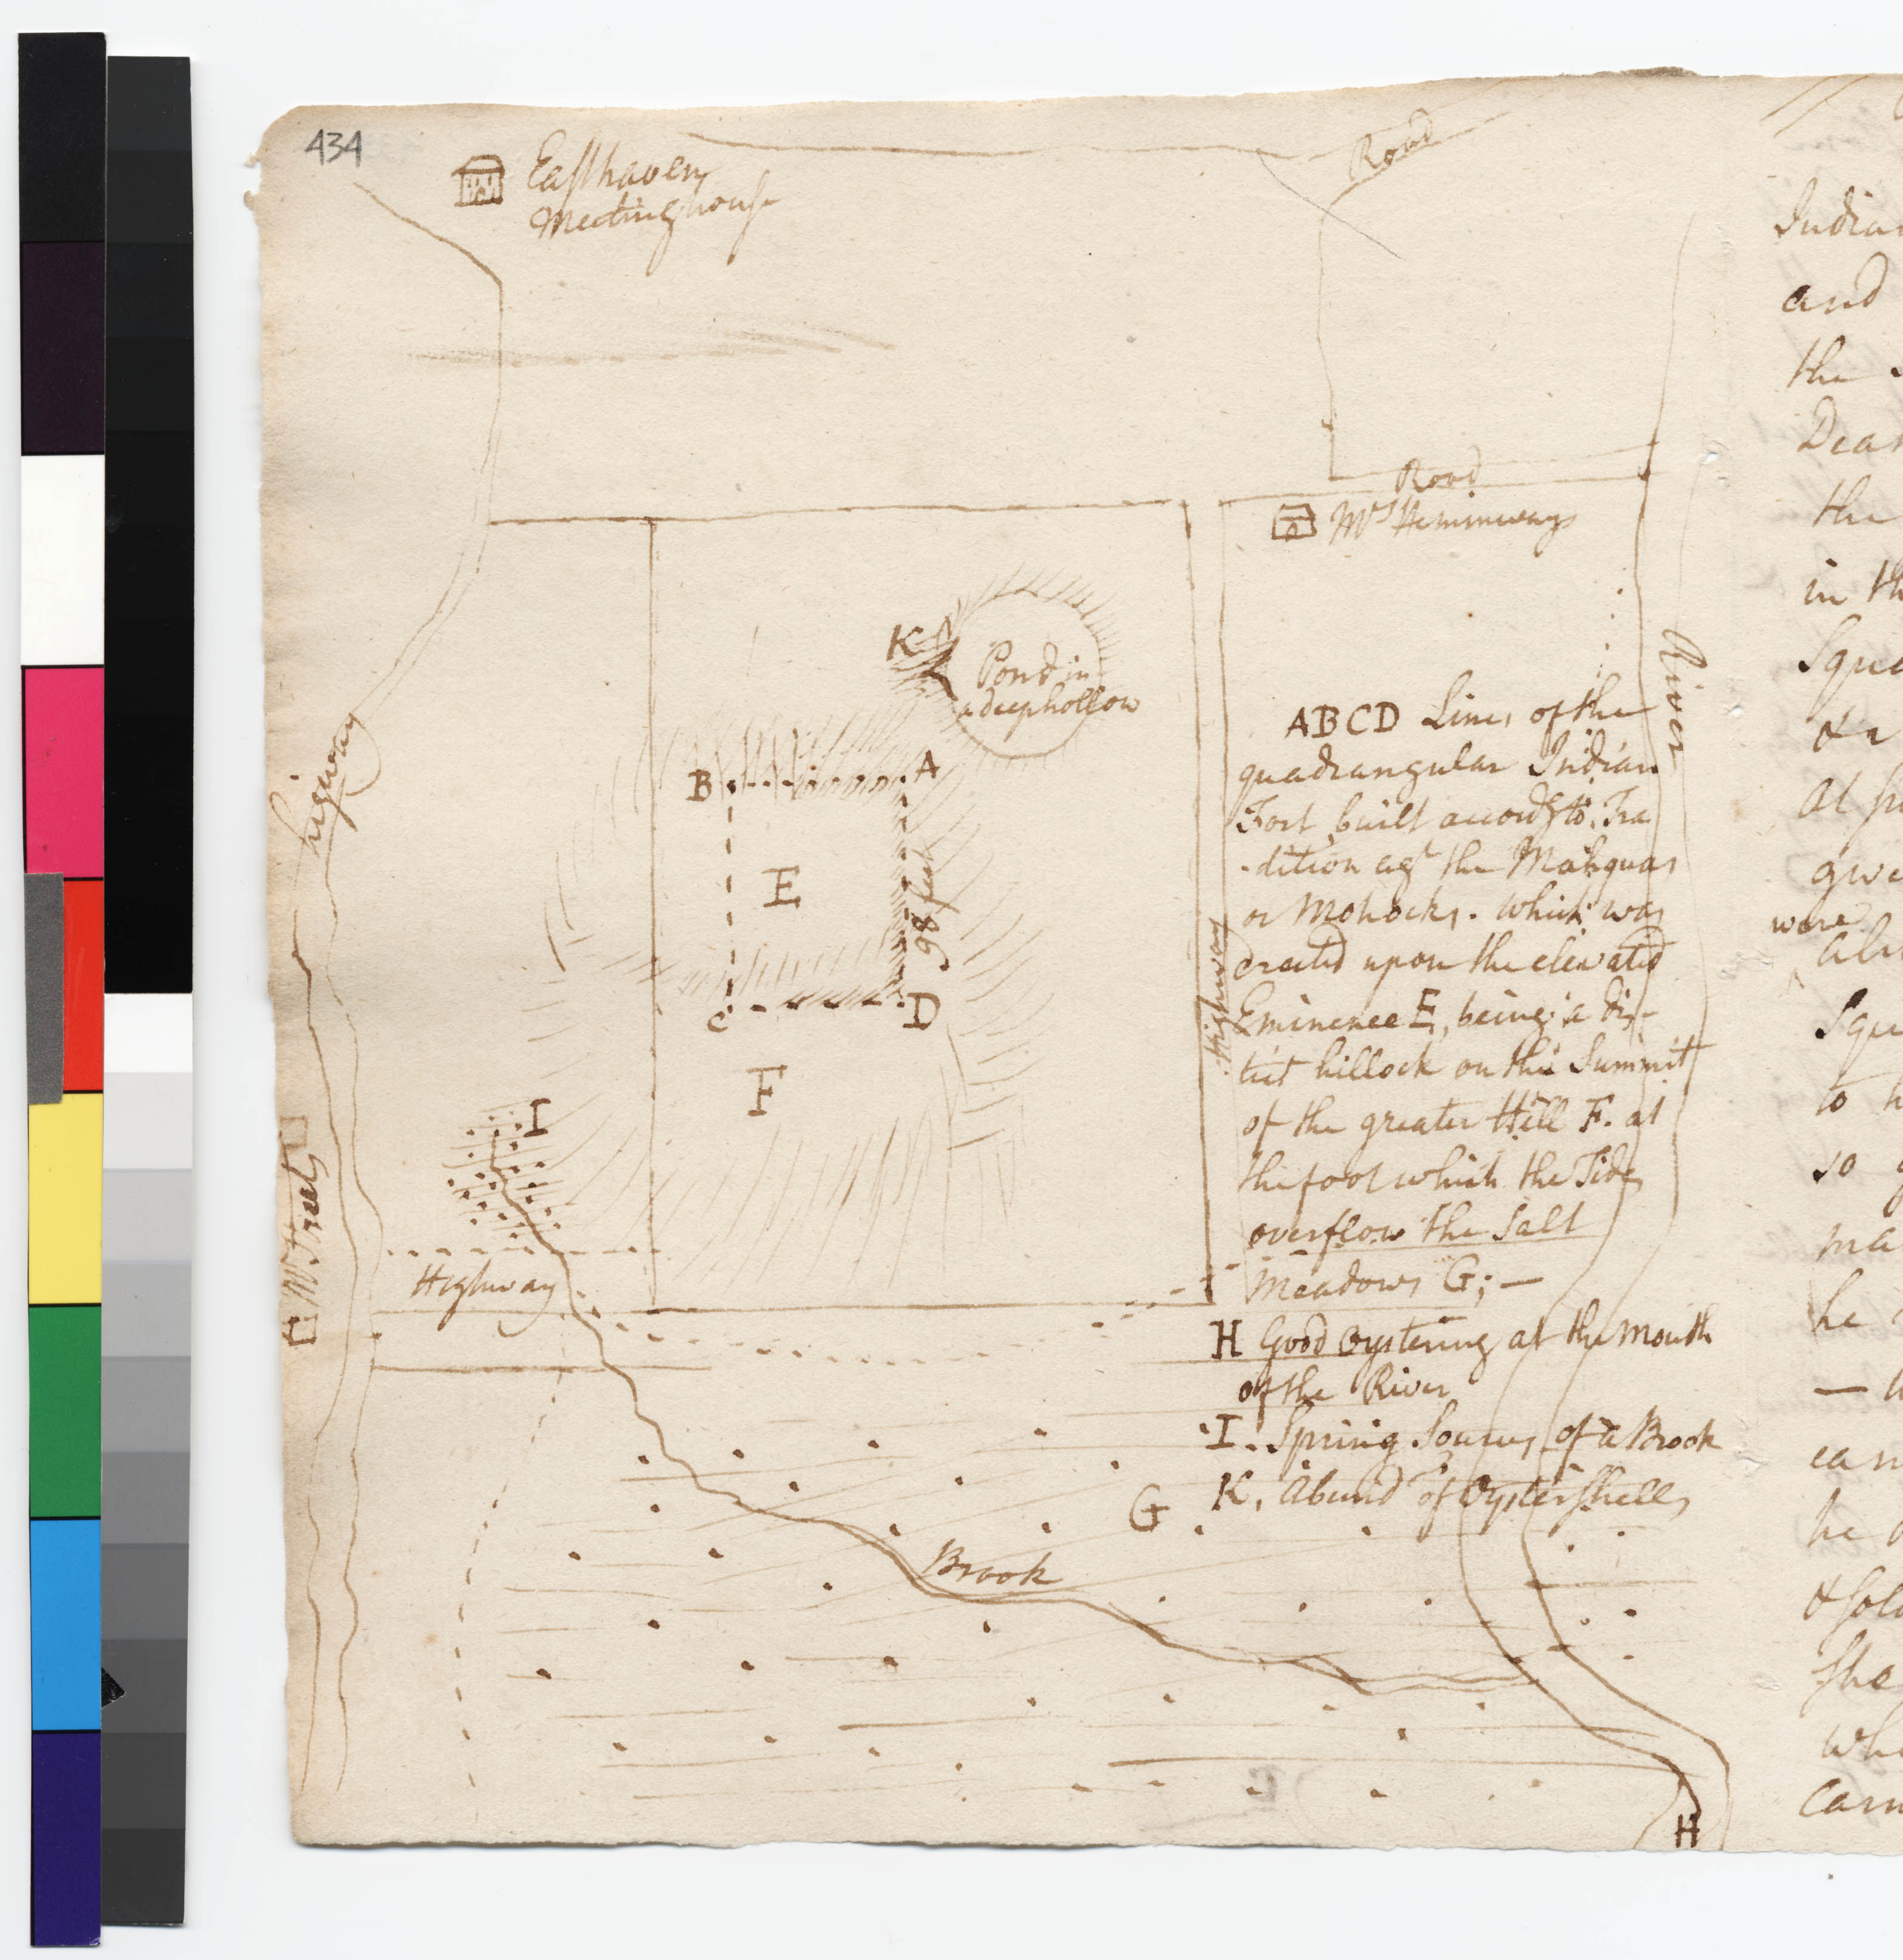 434
Easthaven
Meetinghouse
Road
Road
Mrs Heminways
River
highway
K
Pond in
a deep hollow
B
A
E
98 feet
C
D
F
Highway
I
Mr Streets
Highway
ABCD Lines of the
quadrangular Indian
Fort built accordg to Tra
-dition agt the Mahquas
or Mohocks. which was
erected upon the elevated
Eminence E, being a dis-
tict hillock on the Summit
of the greater Hill F. at
the foot which the Tides
overflow the Salt
Meadows G; —
H Good Oystering at the Mouth
of the River
I. Spring Source of a Brook
K. Abund of Oystershells
G
Brook
H
and
the
the
in
were
to
so
he
he
She